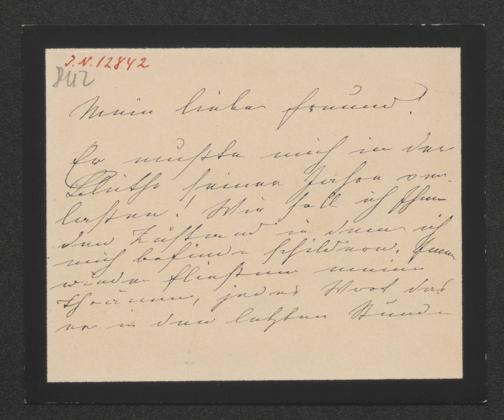 J.N.12842
842
Mein lieber Freund!
Er mußte mich in der
Blüthe seiner Jahre ver-
lassen! Wie soll ich Ihnen
den Zustand in dem ich
mich befinde schildern. Immer
wieder fließen meine
Thränen, jedes Wort das
er in den letzten Stunde